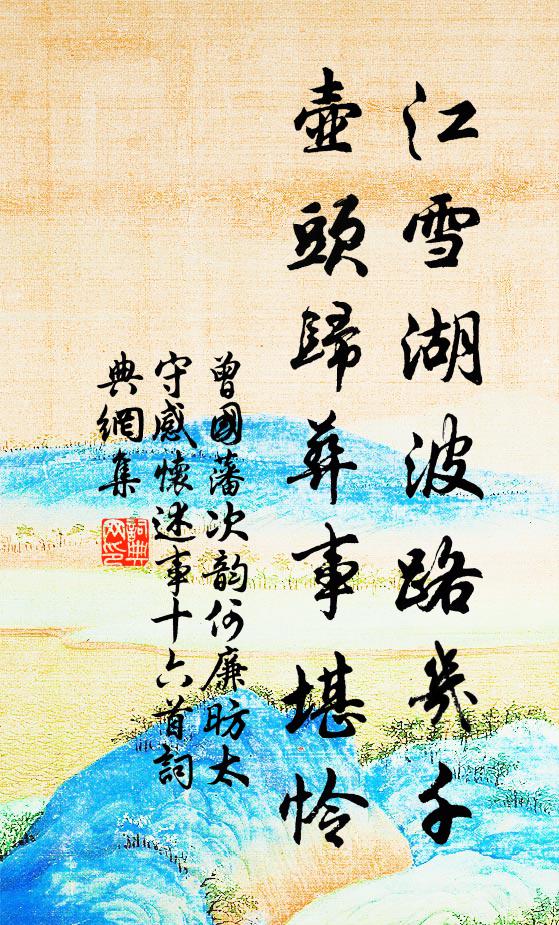 江雪湖波路幾千
壺頭歸葬事堪憐
曾國藩次韵何廉昉太
守感懷述事十六首詞
典網集
詞典
网印